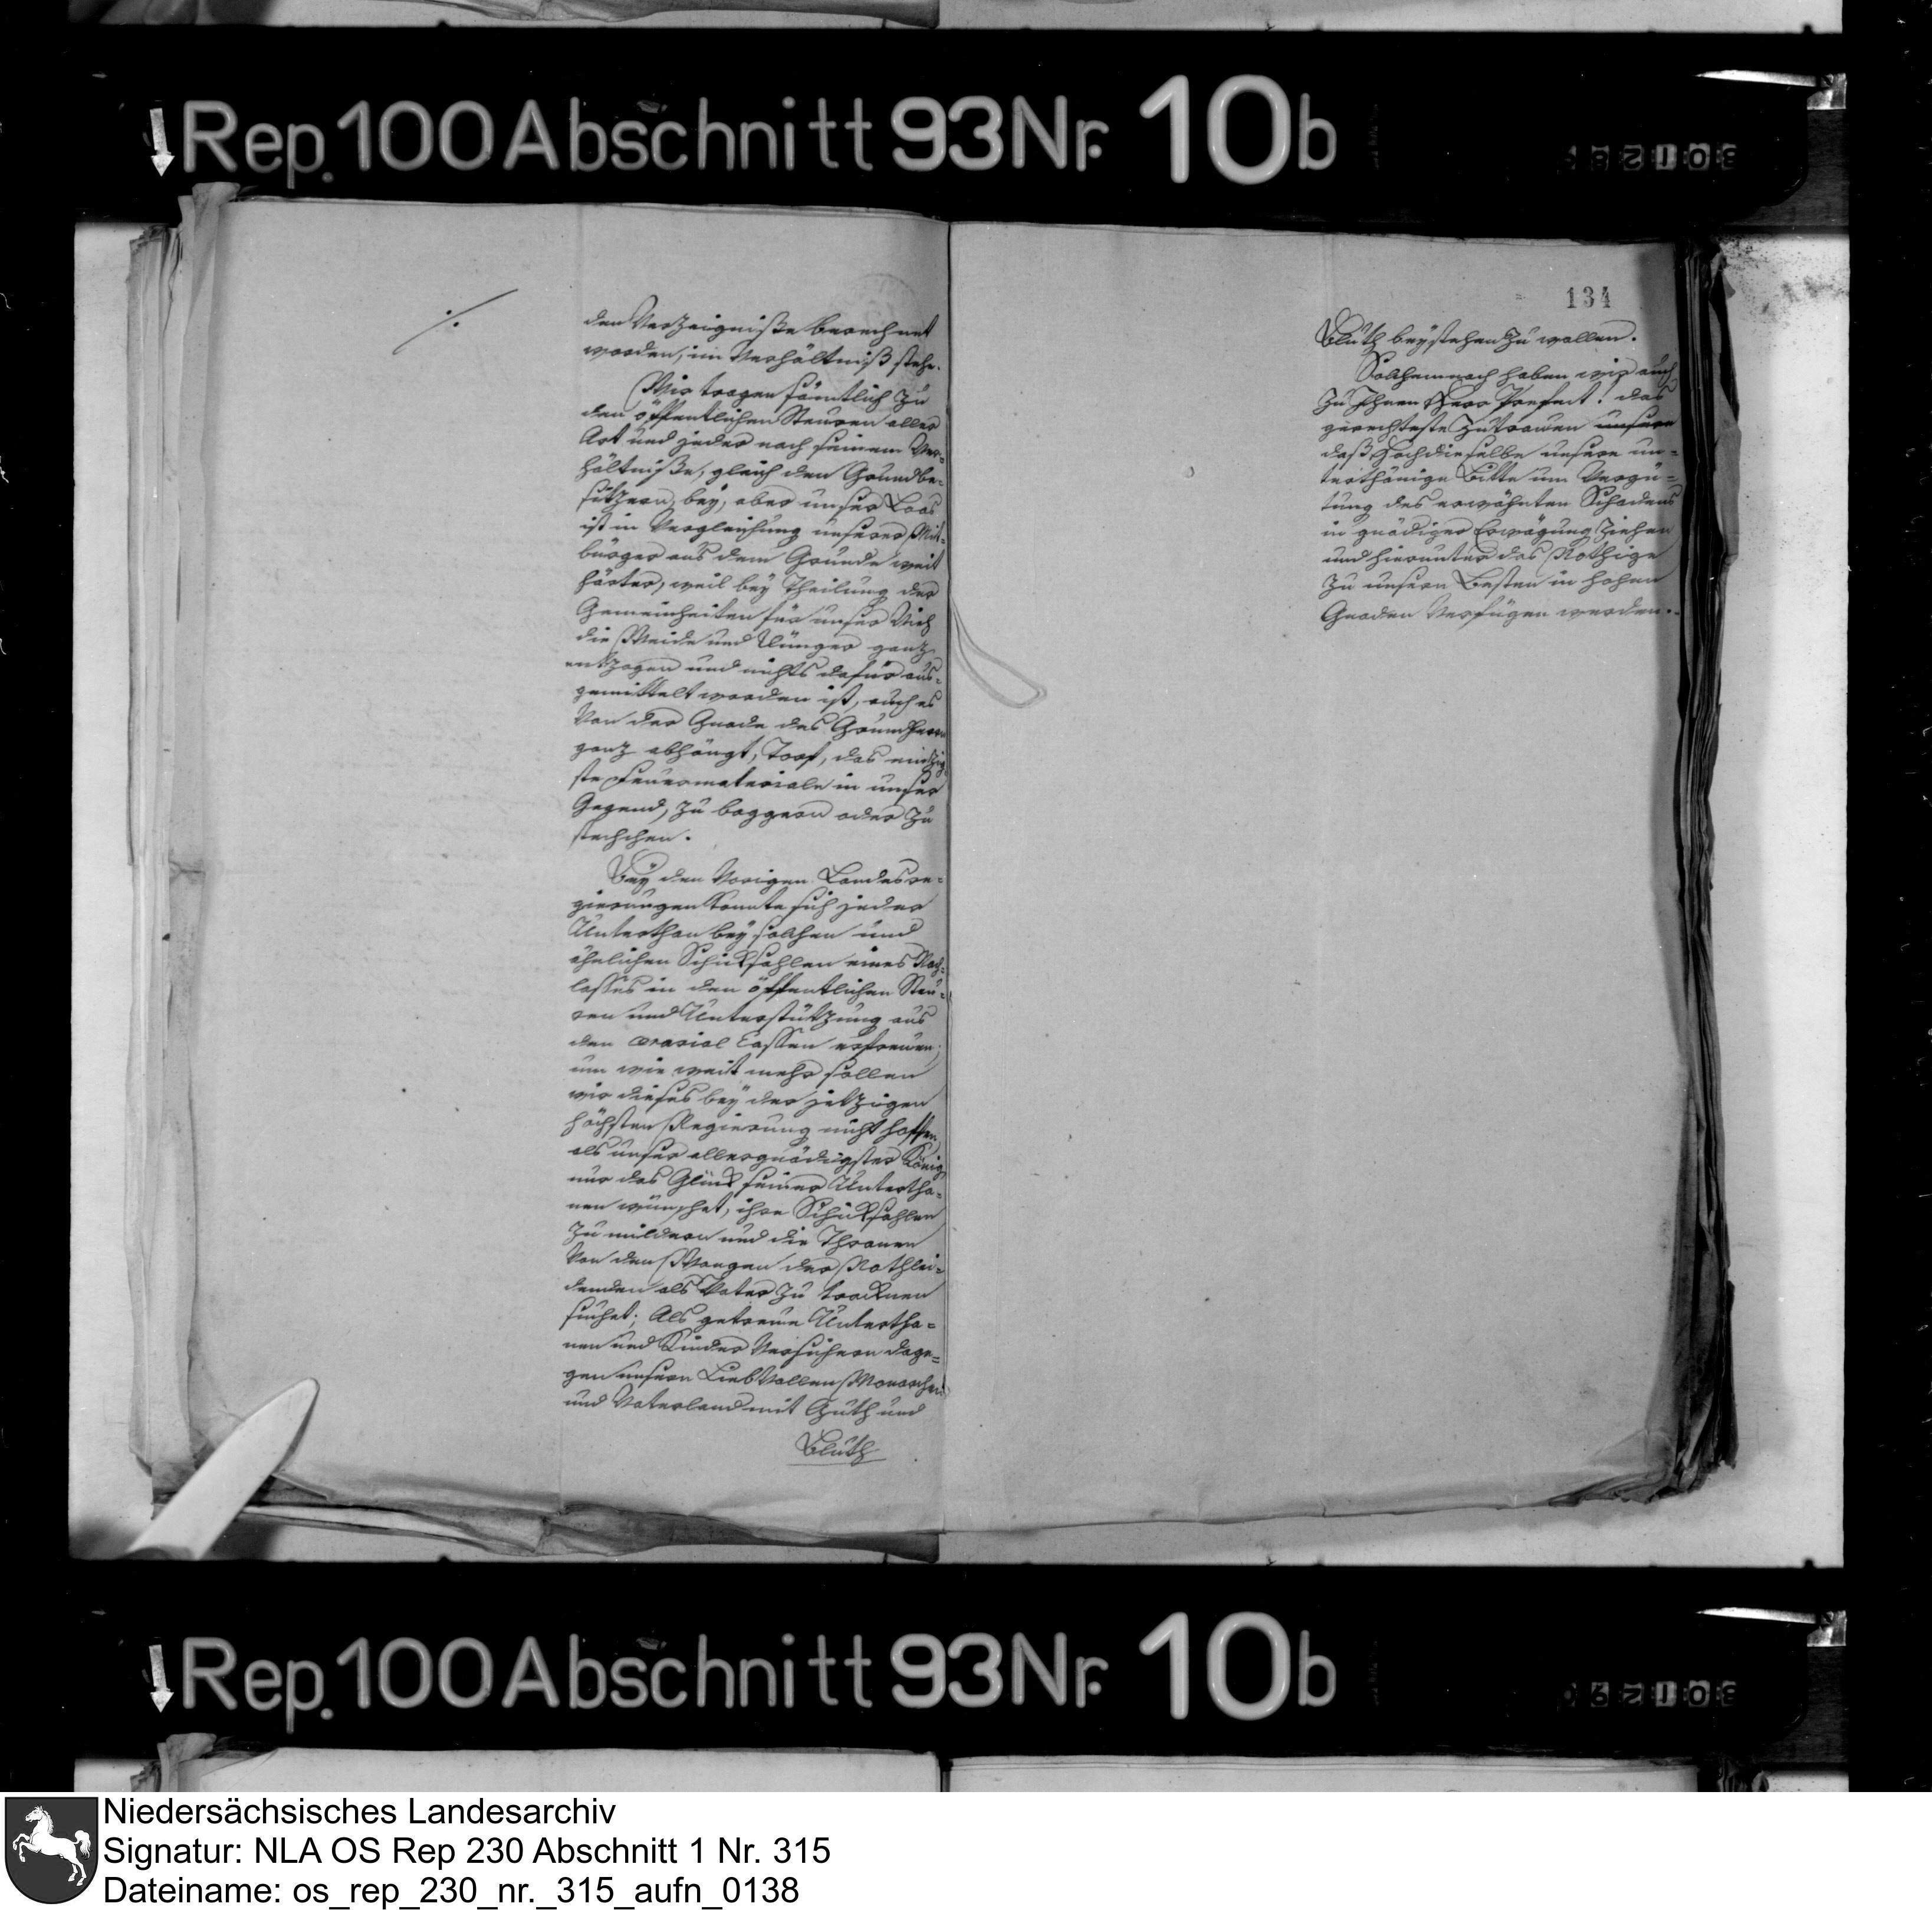 Rep. 100 Abschnitt 93 Nr. 10b
den Verzeigniße berechnet
worden, im Verhältniß stehe.
Wir tragen sämtlich zu
den öffentlichen Steuren aller
Art und jeder nach seinem Ver-
hältniße, gleich den Grundbe-
sitzern bey, aber unser Loos
ist in Vergleichung unserer Mit-
bürger aus dem Grunde weit
härter, weil bey Theilung der
Gemeinheiten für unser Vieh
die Weide und Dünger ganz
entzogen und nichts dafür aus-
gemittelt worden ist, auch es
von der Gnade des Grundherrn
ganz abhängt, Torf, das einzig
ste Feuermateriale in unser
Gegend, zu baggern oder zu
stechen.
Bey den vorigen Landesre-
gierungen konnte sich jeder
Unterthan bey solchen und
ähnlichen Schicksahlen eines Nach-
lasses in den öffentlichen Steu-
ren und Unterstützung aus
den aerarial Cassen erfreuen;
um wie weit mehr sollen
wir dieses bey der jetzigen
höchsten Regierung nicht hoffen,
als unser allergnädigster König
nur das Glück seiner Untertha-
nen wünschet, ihre Schicksahlen
zu mildern und die Thränen
von den Wangen der Nothlei-
denden als Vater zu trocknen
suchet; Als getreue Untertha-
nen und Kinder versichern dage-
gen unsern Liebvollen Monarchen
und Vaterland mit Guth und
Bluth
134
Bluth beystehen zu wollen.
Solchemnach haben wir auch
zu Ihnen Herr Prefect! das
gerechteste Zutrauen unsere
daß Hochdieselbe unsere un-
terthänige Bitte um Vergü-
tung des erwähnten Schadens
in gnädiger Erwägung ziehen
und hierunter das Nöthige
zu unsern Besten in hohen
Gnaden verfügen werden.
Rep. 100 Abschnitt 93 Nr. 10b
Niedersächsisches Landesarchiv
Signatur: NLA OS Rep 230 Abschnitt 1 Nr. 315
Dateiname: os_rep_230_nr._315_aufn_0138